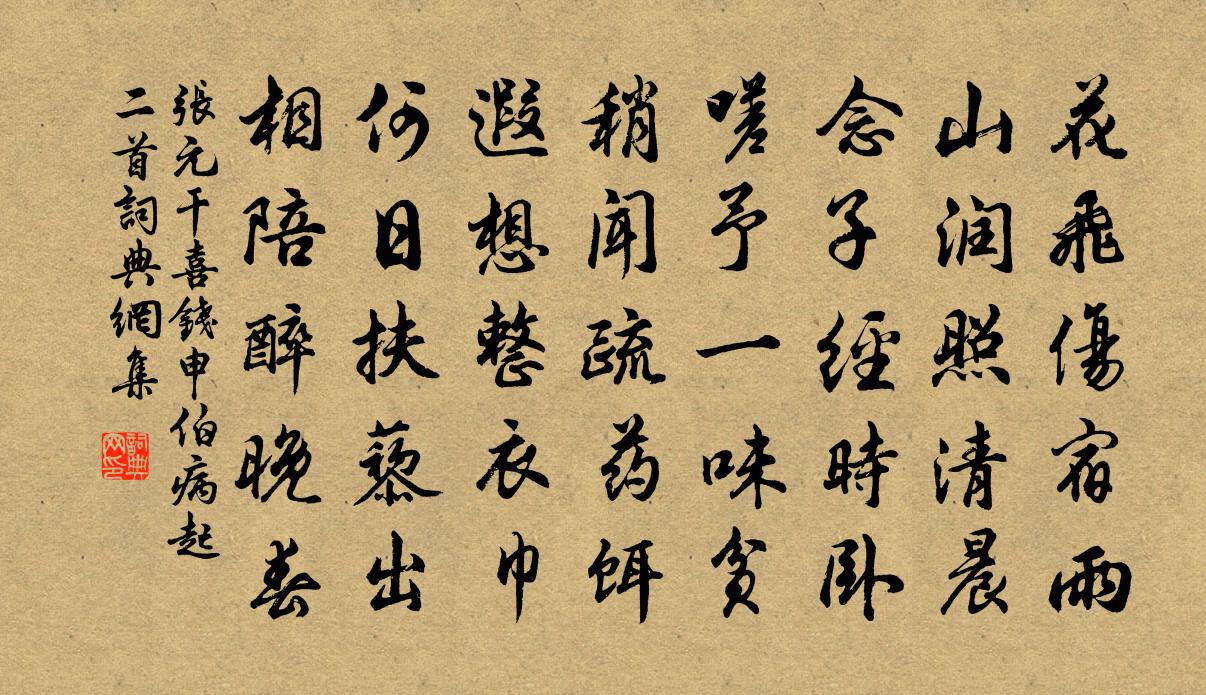 花飛傷宿雨
山润照清晨
念子經時卧
嗟予一味貧
稍聞疏药餌
遐想整衣巾
何日扶藜出
相陪醉晚春
張元干喜錢申伯病起
二首詞典網集
詞典网印